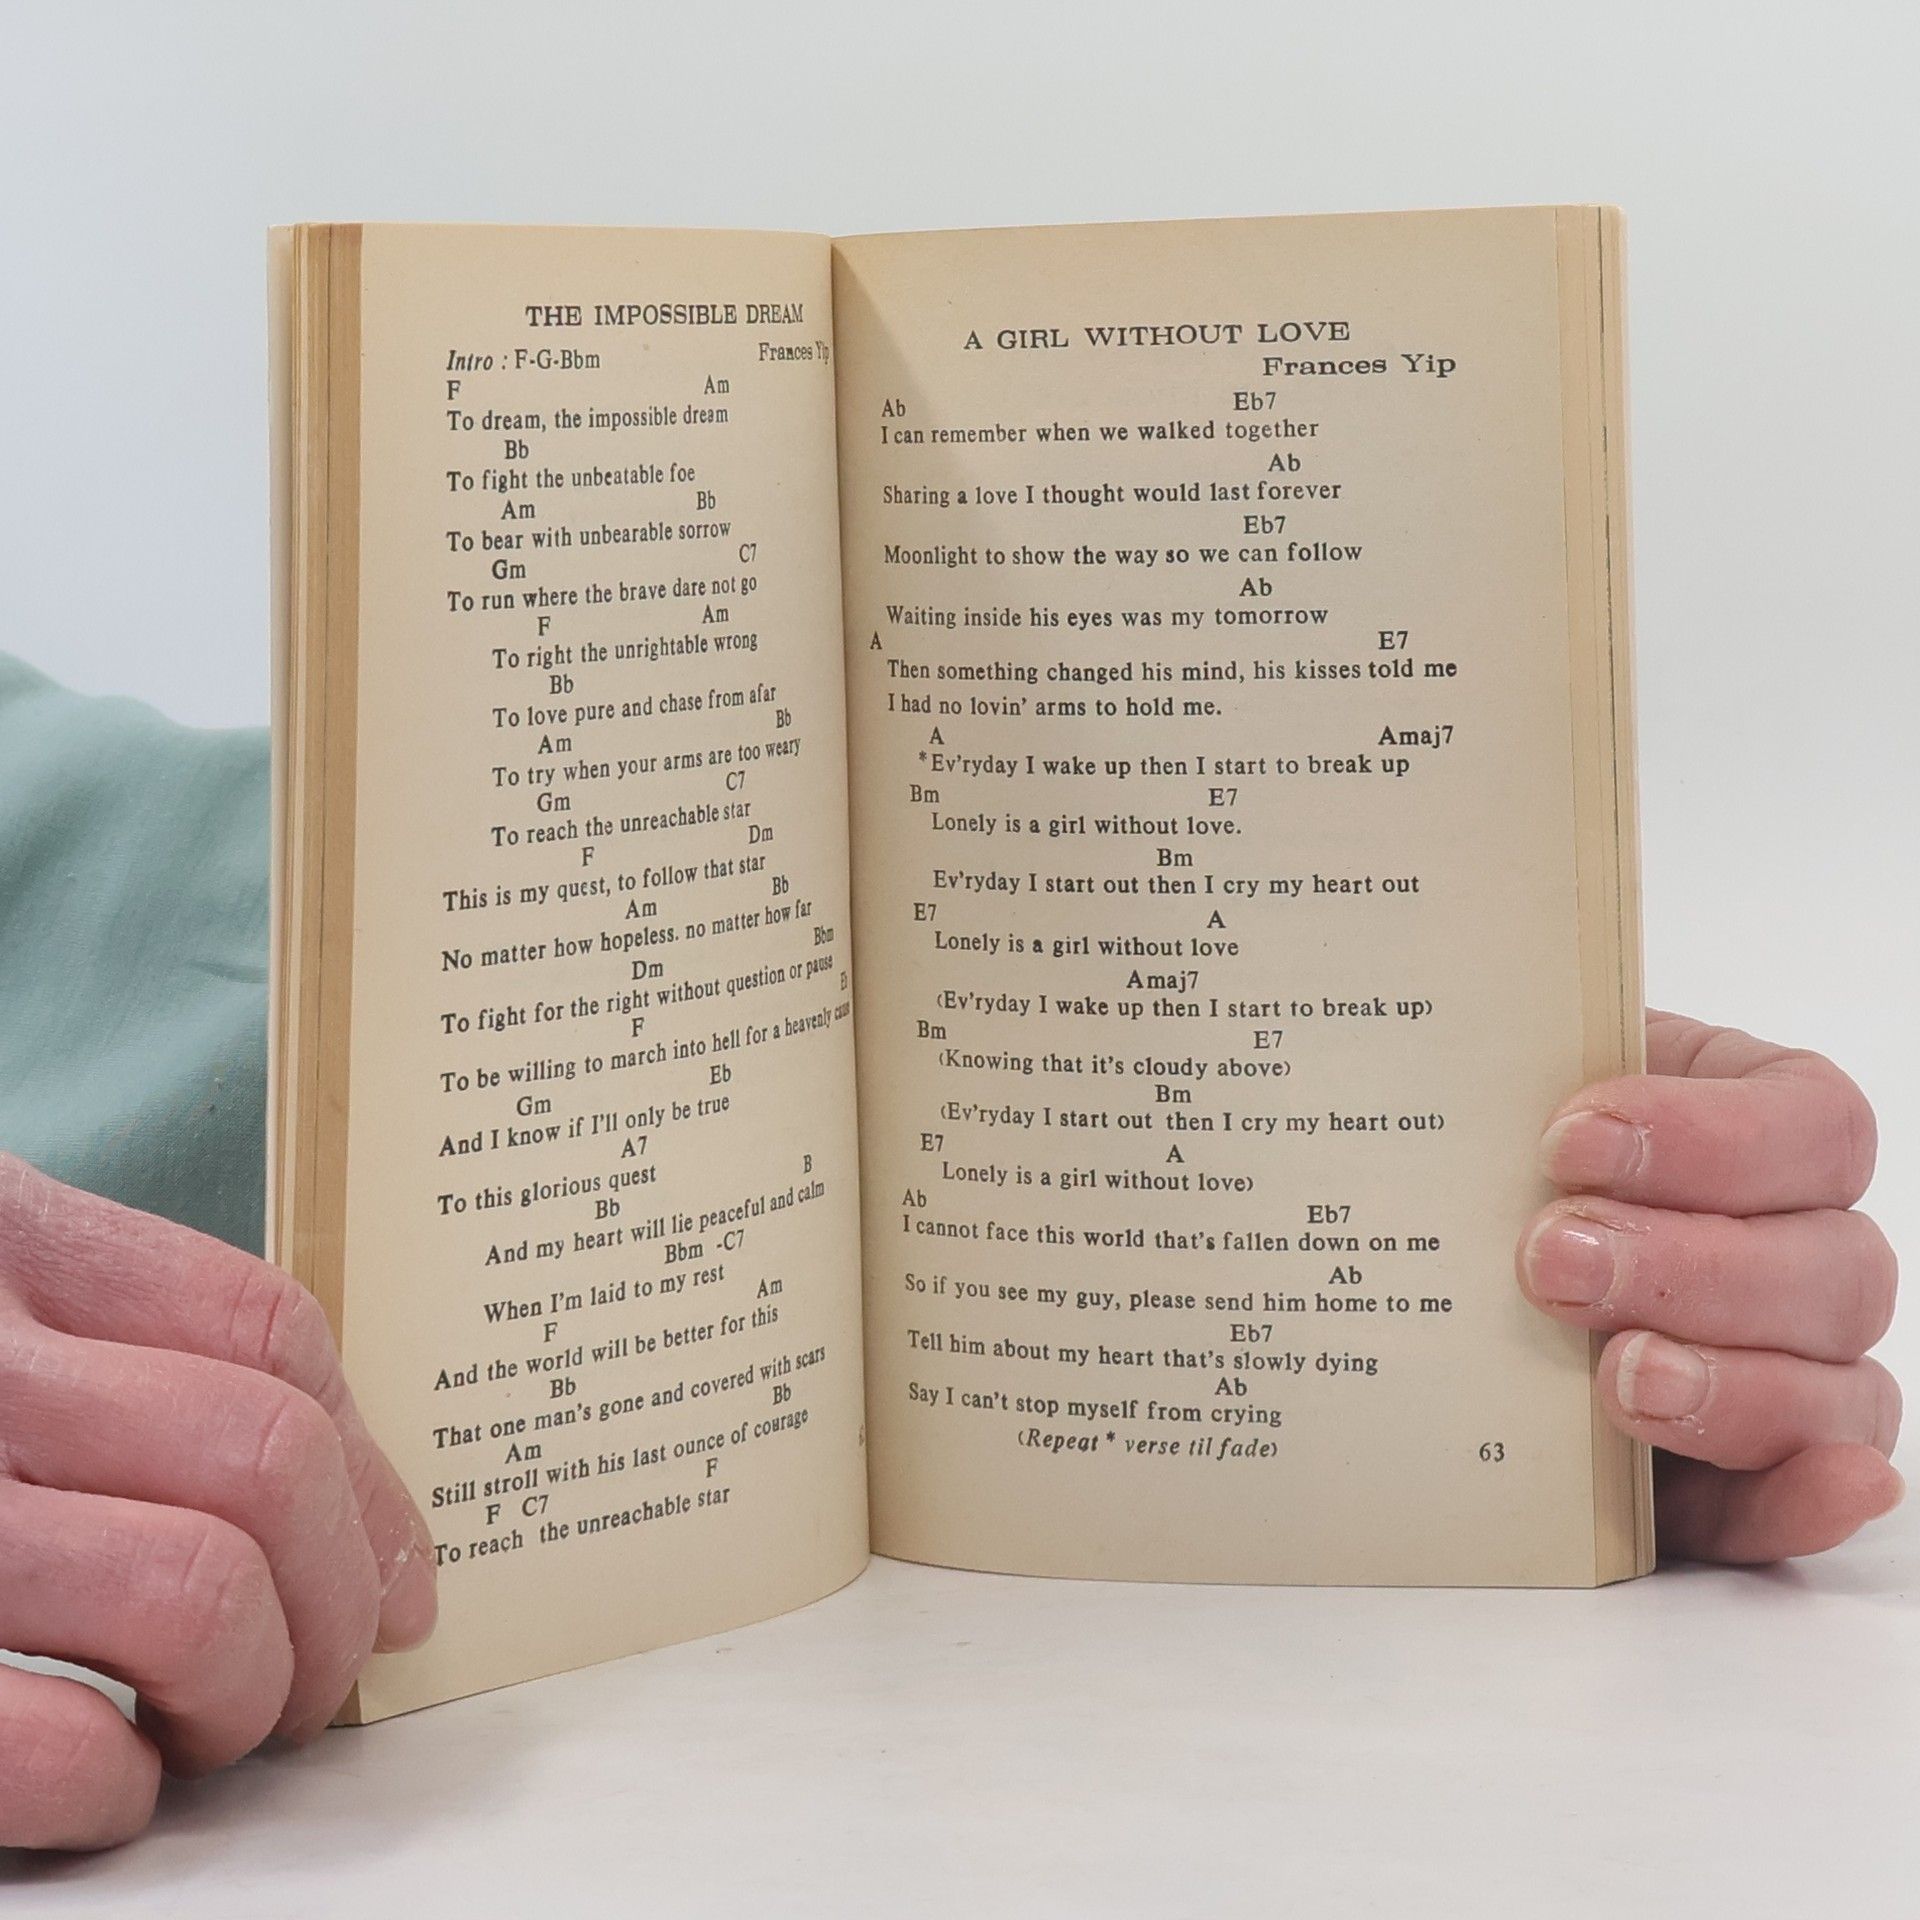 THE IMPOSSIBLE DREAM
Intro : F-G-Bbm Frances Yip
F Am
To dream, the impossible dream
Bb
To fight the unbeatable foe
Am Bb
To bear with unbearable sorrow
Gm C7
To run where the brave dare not go
F Am
To right the unrightable wrong
Bb
To love pure and chase from afar
Am Bb
To try when your arms are too weary
Gm C7
To reach the unreachable star
F Dm
This is my quest, to follow that star
Am Bb
No matter how hopeless. no matter how far
Dm Bbm
To fight for the right without question or pause
F
To be willing to march into hell for a heavenly cause
Gm Eb
And I know if I'll only be true
A7
To this glorious quest
Bb B
And my heart will lie peaceful and calm
Bbm -C7
When I'm laid to my rest
F Am
And the world will be better for this
Bb
That one man's gone and covered with scars
Am Bb
Still stroll with his last ounce of courage
F C7 F
To reach the unreachable star
A GIRL WITHOUT LOVE
Frances Yip
Ab Eb7
I can remember when we walked together
Ab
Sharing a love I thought would last forever
Eb7
Moonlight to show the way so we can follow
Ab
Waiting inside his eyes was my tomorrow
A E7
Then something changed his mind, his kisses told me
I had no lovin' arms to hold me.
A Amaj7
*Ev'ryday I wake up then I start to break up
Bm E7
Lonely is a girl without love.
Bm
Ev'ryday I start out then I cry my heart out
E7 A
Lonely is a girl without love
Amaj7
(Ev'ryday I wake up then I start to break up)
Bm E7
(Knowing that it's cloudy above)
Bm
(Ev'ryday I start out then I cry my heart out)
E7 A
Lonely is a girl without love)
Ab Eb7
I cannot face this world that's fallen down on me
Ab
So if you see my guy, please send him home to me
Eb7
Tell him about my heart that's slowly dying
Ab
Say I can't stop myself from crying
(Repeat * verse til fade)
63